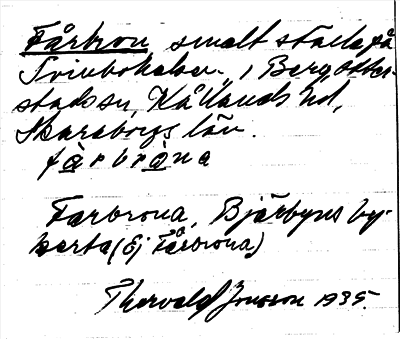 Fårbron, smalt ställe på
Svinbokelsen, i Berg, Otter-
stads sn, Kållands hd,
Skaraborgs län.
fàrbròna
Farbrona, Bjärbyns by-
karta (Ej Fårbrona)
Thorvald Jonsson 1935.